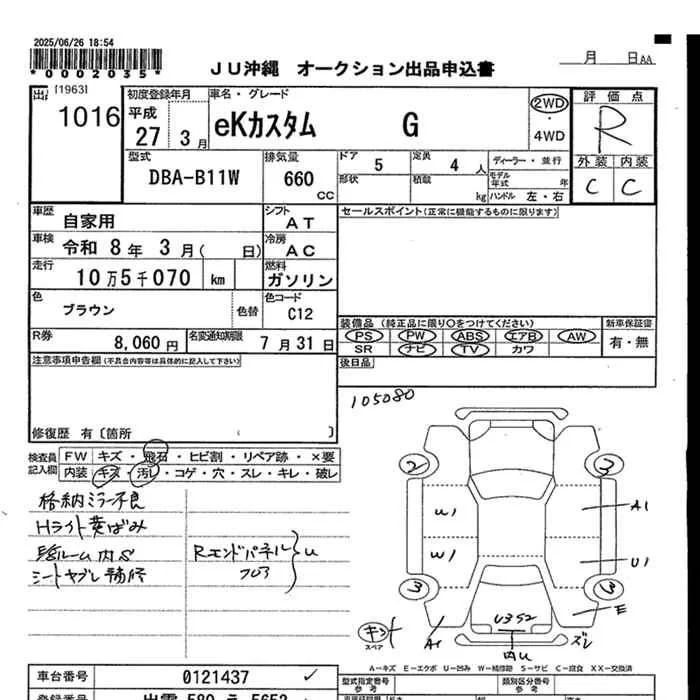 2025/06/26 18:54
*0002035*
JU沖縄 オークション出品申込書
月 日AA
[1963]
1016
初度登録年月
平成
27 3月
車名・グレード
eKカスタム G
2WD
・
4WD
評価点
R
外装 内装
C C
型式
DBA-B11W
排気量
660
CC
ドア
5
定員
4人
形状
積載
kg
ディーラー・並行
モデル年式 年
ハンドル 左・右
車歴
自家用
シフト
AT
車検
令和 8年 3月( 日)
冷房
AC
走行
10万5千070 km
燃料
ガソリン
色
ブラウン
色替
色コード
C12
R券
8,060円
名変通知期限
7月31日
セールスポイント(正常に機能するものに限ります)
装備品(純正品に限り○をつけてください)
PS PW ABS エアB AW
SR ナビ TV カワ
新車保証書
有・無
後日品
注意事項申告欄(不具合内容等は具体的に記入して下さい)
修復歴 有〔箇所 〕
105080
検査員
記入欄
FW キズ・飛石・ヒビ割・リペア跡・×要
内装 キズ・汚レ・コゲ・穴・スレ・キレ・破レ
格納ミラー不良
Hライト黄ばみ
シートヤブレ補修
Rエンドパネル
U
2 3
U1 A1
W1 U1
3 3
E
U3S2
A1
内U
ズレ
キズ
スペア
A−キズ E−エクボ U−凹み W−補修跡 S−サビ C−腐食 XX−交換済
車台番号
0121437
型式指定番号
参考
類別区分番号
参考
登録番号
出雲 580 え 5652